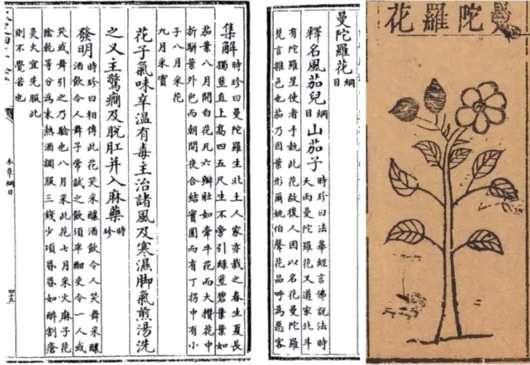 曼陀羅花
曼陀羅花綱目
釋名風茄兒綱目山茄子時珍曰法華經言佛說法時
天雨曼陀羅花又道家北斗
有陀羅星使者手執此花故後人因以名花曼陀羅
梵言雜色也茄乃因葉形爾姚伯聲花品呼為惡客
集解時珍曰曼陀羅生北土人家亦栽之春生夏長
獨莖直上高四五尺生不旁引綠莖碧葉葉如
茄葉八月開白花凡六瓣狀如牽牛花而大攢花中
折駢葉外包而朝開夜合結實圓而有丁拐中有小
子八月采花
九月采實
花子氣味辛溫有毒主治諸風及寒濕腳氣煎湯洗
之又主驚癇及脫肛并入麻藥時珍
發明時珍曰相傳此花笑采釀酒飲令人笑舞采釀
酒飲令人舞予常試之飲須半酣更令一人或
笑或舞引之乃驗也八月采此花七月采火麻子花
陰乾等分為末熱酒調服三錢少頃昏昏如醉割瘡
灸火宜先服此
則不覺苦也
本草綱目